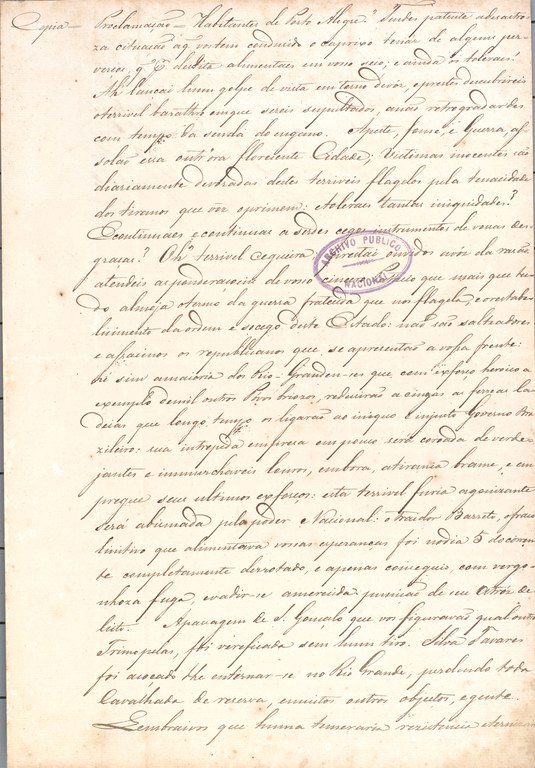 Copia— Proclamação — Habitantes de Porto Alegre! Vêdes patente a desastro-
za cituação aq' vos tem conduzido o caprixo tenas de alguns per-
versos, q' alimentaes em voso seio; e ainda os tolerais?
Ah! lançai hum golpe de vista em torno de vós, e prestes descubrireis
o terrivel baráthro em que sereis sepultados, a não retrogradardes
com tempo da senda do engano. A peste, fome, e Guerra, as-
solão essa outr'ora florecente Cidade; Victimas inocentes são
diariamente devoradas destes terriveis flagelos pela tenacidade
dos tiranos que vos oprimem: e tolerais tantas iniquidades?
E continuaes e continuaes a serdes cegos instrumentos de vosas des-
graças? Oh! terrivel cegueira Prestai ouvidos a vóz da razão,
atendeis a ponderação de voso que mais que tu-
do almeja o termo da guerra fratecida que nos flagela, e o restabe-
lecimento da ordem e socego deste Estado: não são salteadores
e asasinos os republicanos que se apresentão a vossa frente:
hé sim a maioria dos Rio-Grandenses que com exforço heroico a
exemplo de mil outros Povos briozos, reduzirão a cinzas as ferreas ca-
deias que longo tempo os ligarão ao iniquo e injusto Governo Bra-
zileiro: sua intrepida empreza em pouco será coroada de verde-
jantes e immurchaveis louros, embora, a tirania brame, e em-
pregue seus ultimos exforços: esta terrivel furia agonizante
será abismada pelo poder Nacional: o traidor Barreto, o frau
linitivo que alimentava vosas esperanças foi no dia 5 do coren-
te completamente derrotado, e apenas conseguio, com vergo-
nhoza fuga, evadir-se a merecida punição de seu atróz de-
lito. A pasagem de S. Gonçalo que vos figuravão qual outra
Trimopelas, foi verificada sem hum tiro. Silva Tavares
foi acoçado the enternar-se no Rio Grande, perdendo toda
Cavalhada de reserva, e muitos outros objectos, e gente.
Lembraivos que huma temeraria rezistencia
ARCHIVO PUBLICO
NACIONAL